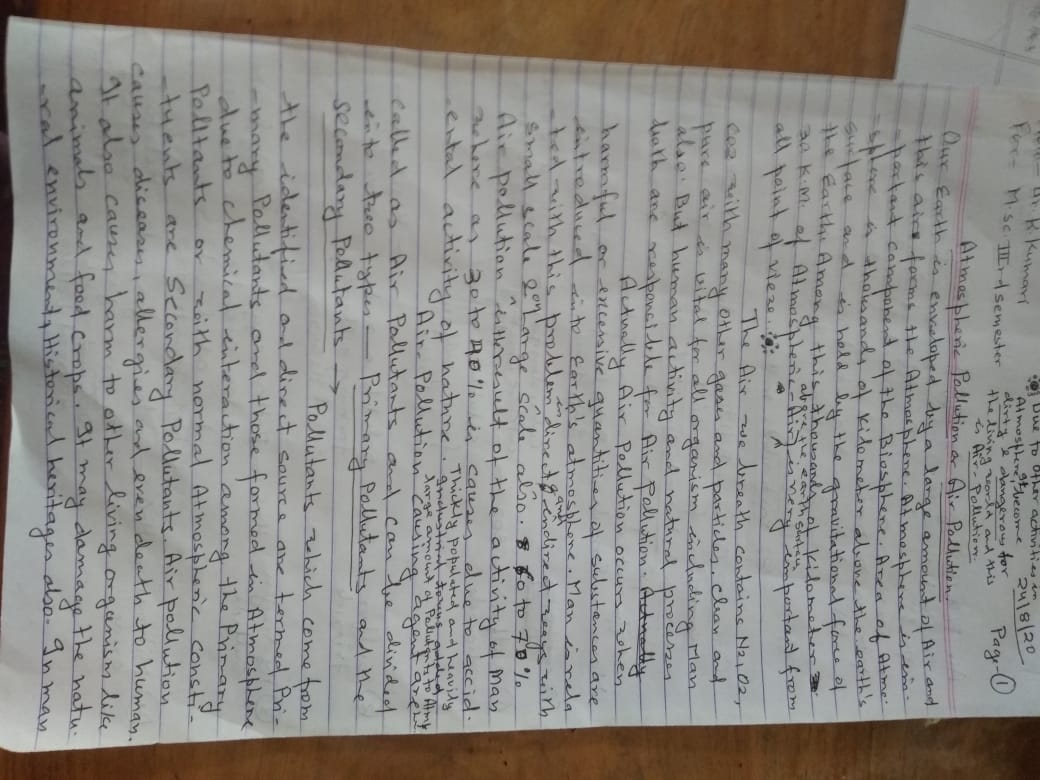 H. K Kumari
For- M.Sc. IIIrd semester
Due to other activities in
Atmosphere become
dirty & dangerous for
the living world and this
is Air Pollution
24/8/20
Pag-①
Atmospheric Pollution or Air Pollution
Our Earth is enveloped by a large amount of Air and
this air forms the Atmosphere. Atmosphere is im-
-portant component of the Biosphere. Area of Atmo-
-sphere is thousands of kilometer above the earth's
surface and is hold by the gravitational force of
the Earth. Among this thousands of kilometer
above the earth surface
30 K.M. of Atmospheric-Air is very important from
all point of view.
The Air we breath contains N2, O2,
CO2 with many other gases and particles. Clean and
pure air is vital for all organism including Man
also. But human activity and natural processes
both are responsible for Air Pollution.
Actually Air Pollution occurs when
harmful or excessive quantities of substances are
introduced into Earth's atmosphere. Man is rela
-ted with this problem in direct & indirect ways with
small scale or large scale also. 60 to 70%
Air pollution is the result of the activity of Man
where as 30 to 40% is cause due to accid-
-ental activity of nature.
Thickly populated and heavily
industrial towns and
large amount of Pollutants to Atmo
Air-Pollution causing agent are
called as Air Pollutants and can be divided
into two types — Primary Pollutants and the
Secondary Pollutants →
Pollutants which come from
the identified or direct source are termed Pri-
-mary Pollutants and those formed in Atmosphere
due to chemical interaction among the Primary
Polltants or with normal Atmospheric consti-
-tuents are Secondary Pollutants. Air pollution
causes diseases, allergies and even death to human.
It also causes harm to other living orgenism like
animals and food crops. It may damage the natu-
-ral environment, Historical heritages also. In man